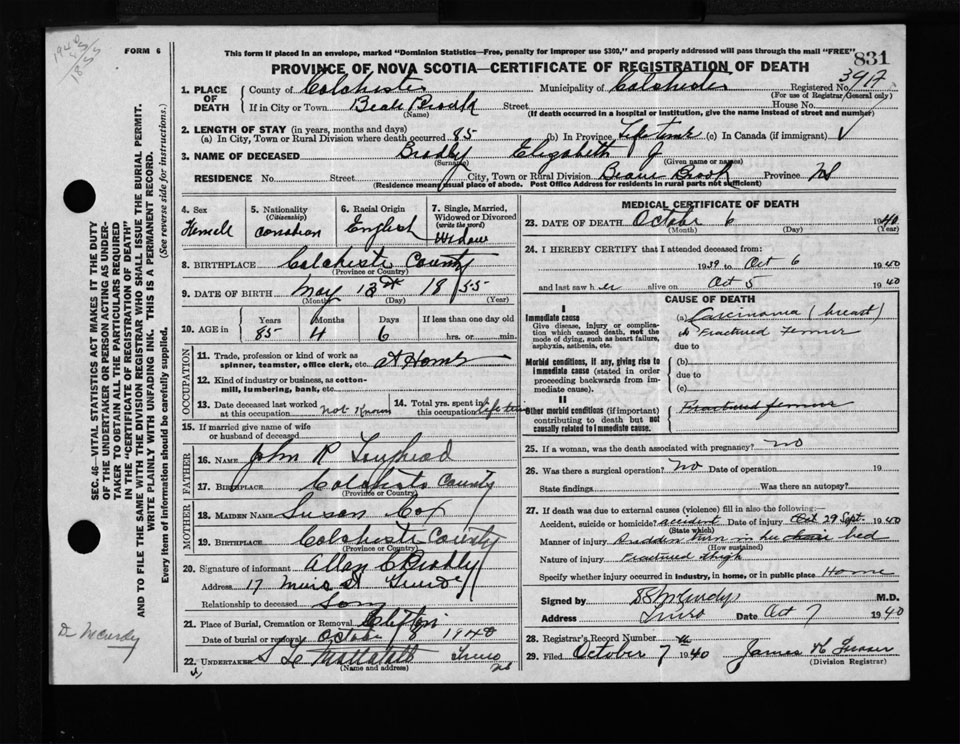 1940
85
1855
FORM 6
This form if placed in an envelope, marked "Dominion Statistics—Free, penalty for improper use $300," and properly addressed will pass through the mail "FREE"
831
PROVINCE OF NOVA SCOTIA—CERTIFICATE OF REGISTRATION OF DEATH
1. PLACE OF DEATH County of Colchester Municipality of Colchester Registered No. 3917
(For use of Registrar General only)
If in City or Town Street House No.
(Name) (If death occurred in a hospital or institution, give the name instead of street and number)
2. LENGTH OF STAY (in years, months and days)
(a) In City, Town or Rural Division where death occurred 85 (b) In Province Life time (c) In Canada (if immigrant)
3. NAME OF DECEASED Bradley Elizabeth J
(Surname) (Given name or names)
RESIDENCE No. Street City, Town or Rural Division Beaver Brook Province NS
(Residence means usual place of abode. Post Office Address for residents in rural parts not sufficient)
SEC. 46—VITAL STATISTICS ACT MAKES IT THE DUTY
OF THE UNDERTAKER OR PERSON ACTING AS UNDER-
TAKER TO OBTAIN ALL THE PARTICULARS REQUIRED
IN THE "CERTIFICATE OF REGISTRATION OF DEATH"
AND TO FILE THE SAME WITH THE DIVISION REGISTRAR WHO SHALL ISSUE THE BURIAL PERMIT.
WRITE PLAINLY WITH UNFADING INK. THIS IS A PERMANENT RECORD.
Every item of information should be carefully supplied. (See reverse side for instructions.)
4. Sex 5. Nationality (Citizenship) 6. Racial Origin 7. Single, Married, Widowed or Divorced (write the word)
Female Canadian English Widow
8. BIRTHPLACE Colchester County
(Province or Country)
9. DATE OF BIRTH May 13th 1855
(Month) (Day) (Year)
10. AGE in Years Months Days If less than one day old
85 4 6 hrs. or min.
OCCUPATION
11. Trade, profession or kind of work as
spinner, teamster, office clerk, etc. at Home
12. Kind of industry or business, as cotton-
mill, lumbering, bank, etc.
13. Date deceased last worked at this occupation not known 14. Total yrs. spent in this occupation Life time
15. If married give name of wife
or husband of deceased
FATHER
16. NAME John R
17. BIRTHPLACE Colchester County
(Province or Country)
MOTHER
18. MAIDEN NAME Susan Cox
19. BIRTHPLACE Colchester County
(Province or Country)
20. Signature of informant Allan C Bradley
Address 17 Muir St Truro
Relationship to deceased Son
21. Place of Burial, Cremation or Removal Clifton
Date of burial or removal October 8 1940
22. UNDERTAKER Truro NS
(Name and address)
Dr McCurdy
MEDICAL CERTIFICATE OF DEATH
23. DATE OF DEATH October 6 1940
(Month) (Day) (Year)
24. I HEREBY CERTIFY that I attended deceased from:
1939 to Oct 6 1940
and last saw her alive on Oct 5 1940
CAUSE OF DEATH
I
Immediate cause
Give disease, injury or complica-
tion which caused death, not the
mode of dying, such as heart failure,
asphyxia, asthenia, etc.
(a) Carcinoma (breast)
Fractured femur
due to
Morbid conditions, if any, giving rise to
immediate cause (stated in order
proceeding backwards from im-
mediate cause).
(b)
due to
(c)
II
Other morbid conditions (if important)
contributing to death but not
causally related to immediate cause.
Fractured femur
25. If a woman, was the death associated with pregnancy? no
26. Was there a surgical operation? no Date of operation 19
State findings Was there an autopsy?
27. If death was due to external causes (violence) fill in also the following:—
Accident, suicide or homicide? accident Date of injury Oct 29 Sept. 1940
(State which)
Manner of injury Sudden turn in her chair bed
(How sustained)
Nature of injury Fractured thigh
Specify whether injury occurred in industry, in home, or in public place Home
Signed by McCurdy M.D.
Address Truro Date Oct 7 1940
28. Registrar's Record Number
29. Filed October 7 1940 James
(Division Registrar)